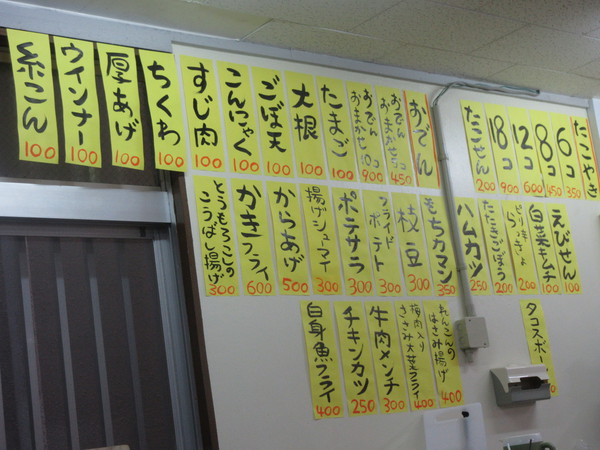 たこやき
6コ 350
8コ 450
12コ 600
18コ 900
たこせん 200
おでん
おでんおまかせ5コ 450
おでんおまかせ10コ 900
たまご 100
大根 100
ごぼ天 100
こんにゃく 100
すじ肉 100
ちくわ 100
厚あげ 100
ウインナー 100
糸こん 100
えびせん 100
白菜キムチ 100
200
たたきごぼう 200
ハムカツ 250
もちカマン 350
枝豆 300
フライドポテト 300
ポテサラ 300
揚げシュウマイ 300
からあげ 500
かきフライ 600
とうもろこしのこうばし揚げ 300
タコスボー
れんこんのはさみ揚げ 400
梅肉入りささみ大葉フライ 400
牛肉メンチ 300
チキンカツ 250
白身魚フライ 400